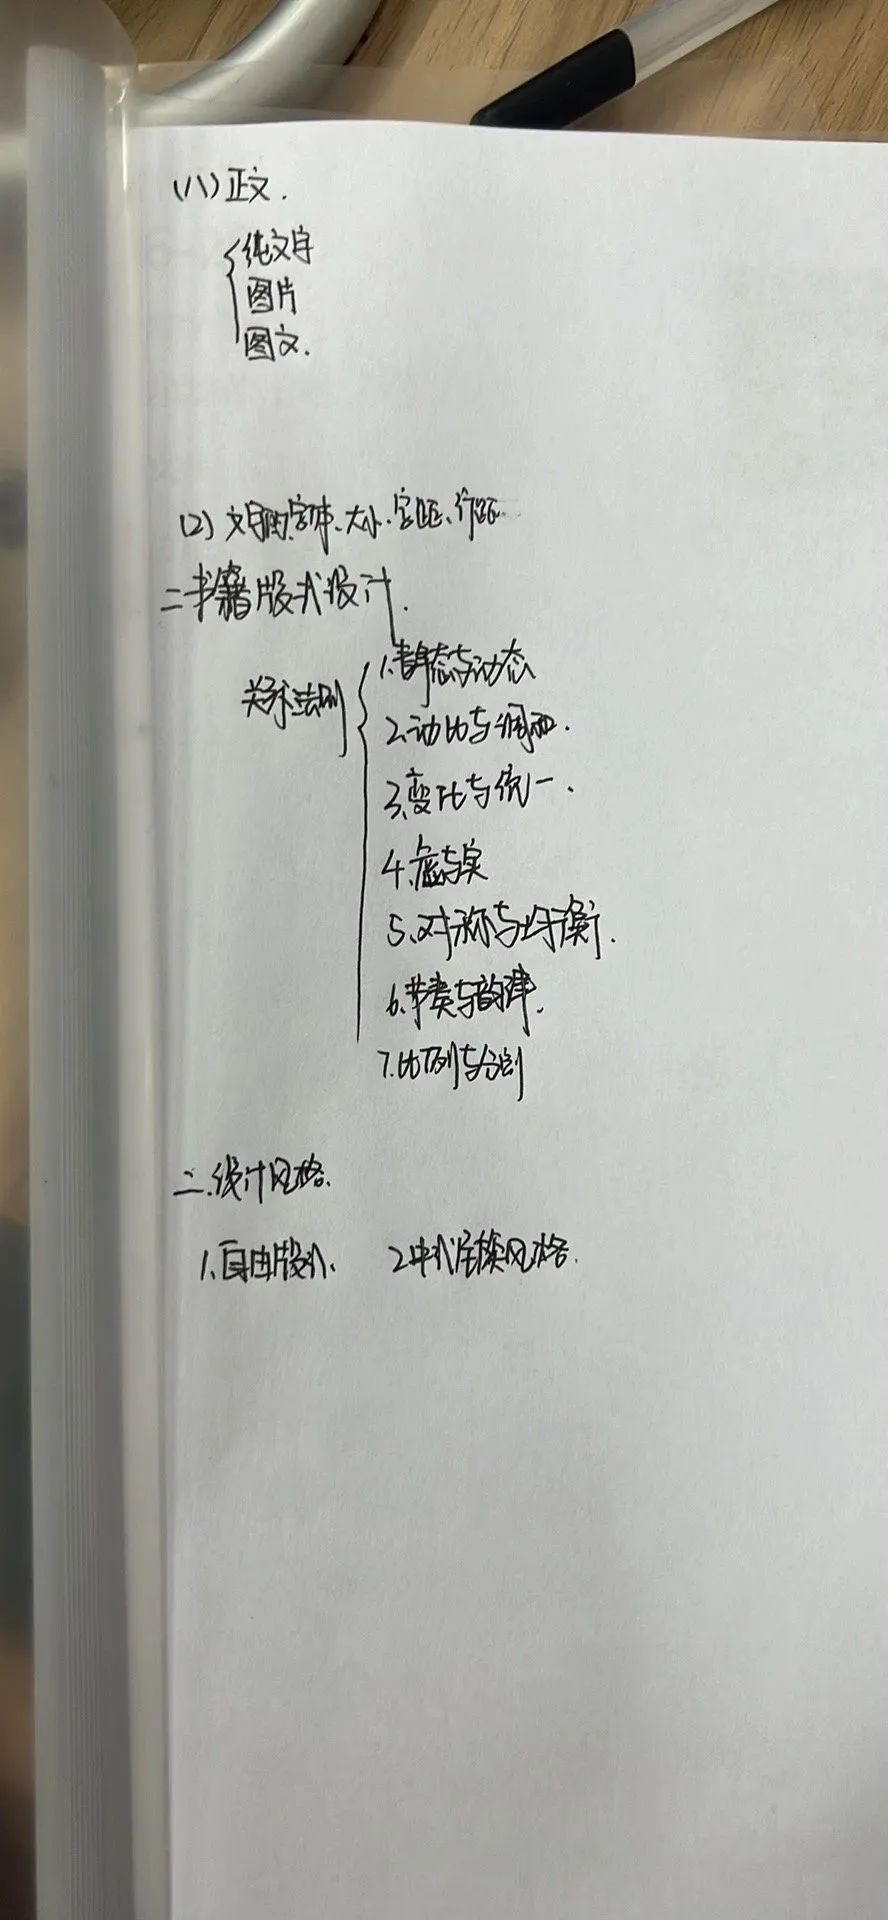 (八)正文.
纯文字
图片
图文.
(2)文字的字体、大小、字距、行距
二书籍版式设计.
法则
1.静态与动态
2.动比与调和.
3.变化与统一.
4.虚与实
5.对称与平衡.
6.节奏与韵律.
7.比例与分割
二.设计风格.
1.自由版式、 2.中式古典风格.